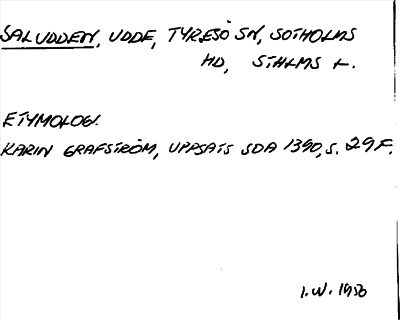 SALUDDEN, UDDE, TYRESÖ SN, SOTHOLMS
HD, STHLMS L.
ETYMOLOGI.
KARIN GRAFSTRÖM, UPPSATS SDA 1390, S. 29 F.
I.W. 1980